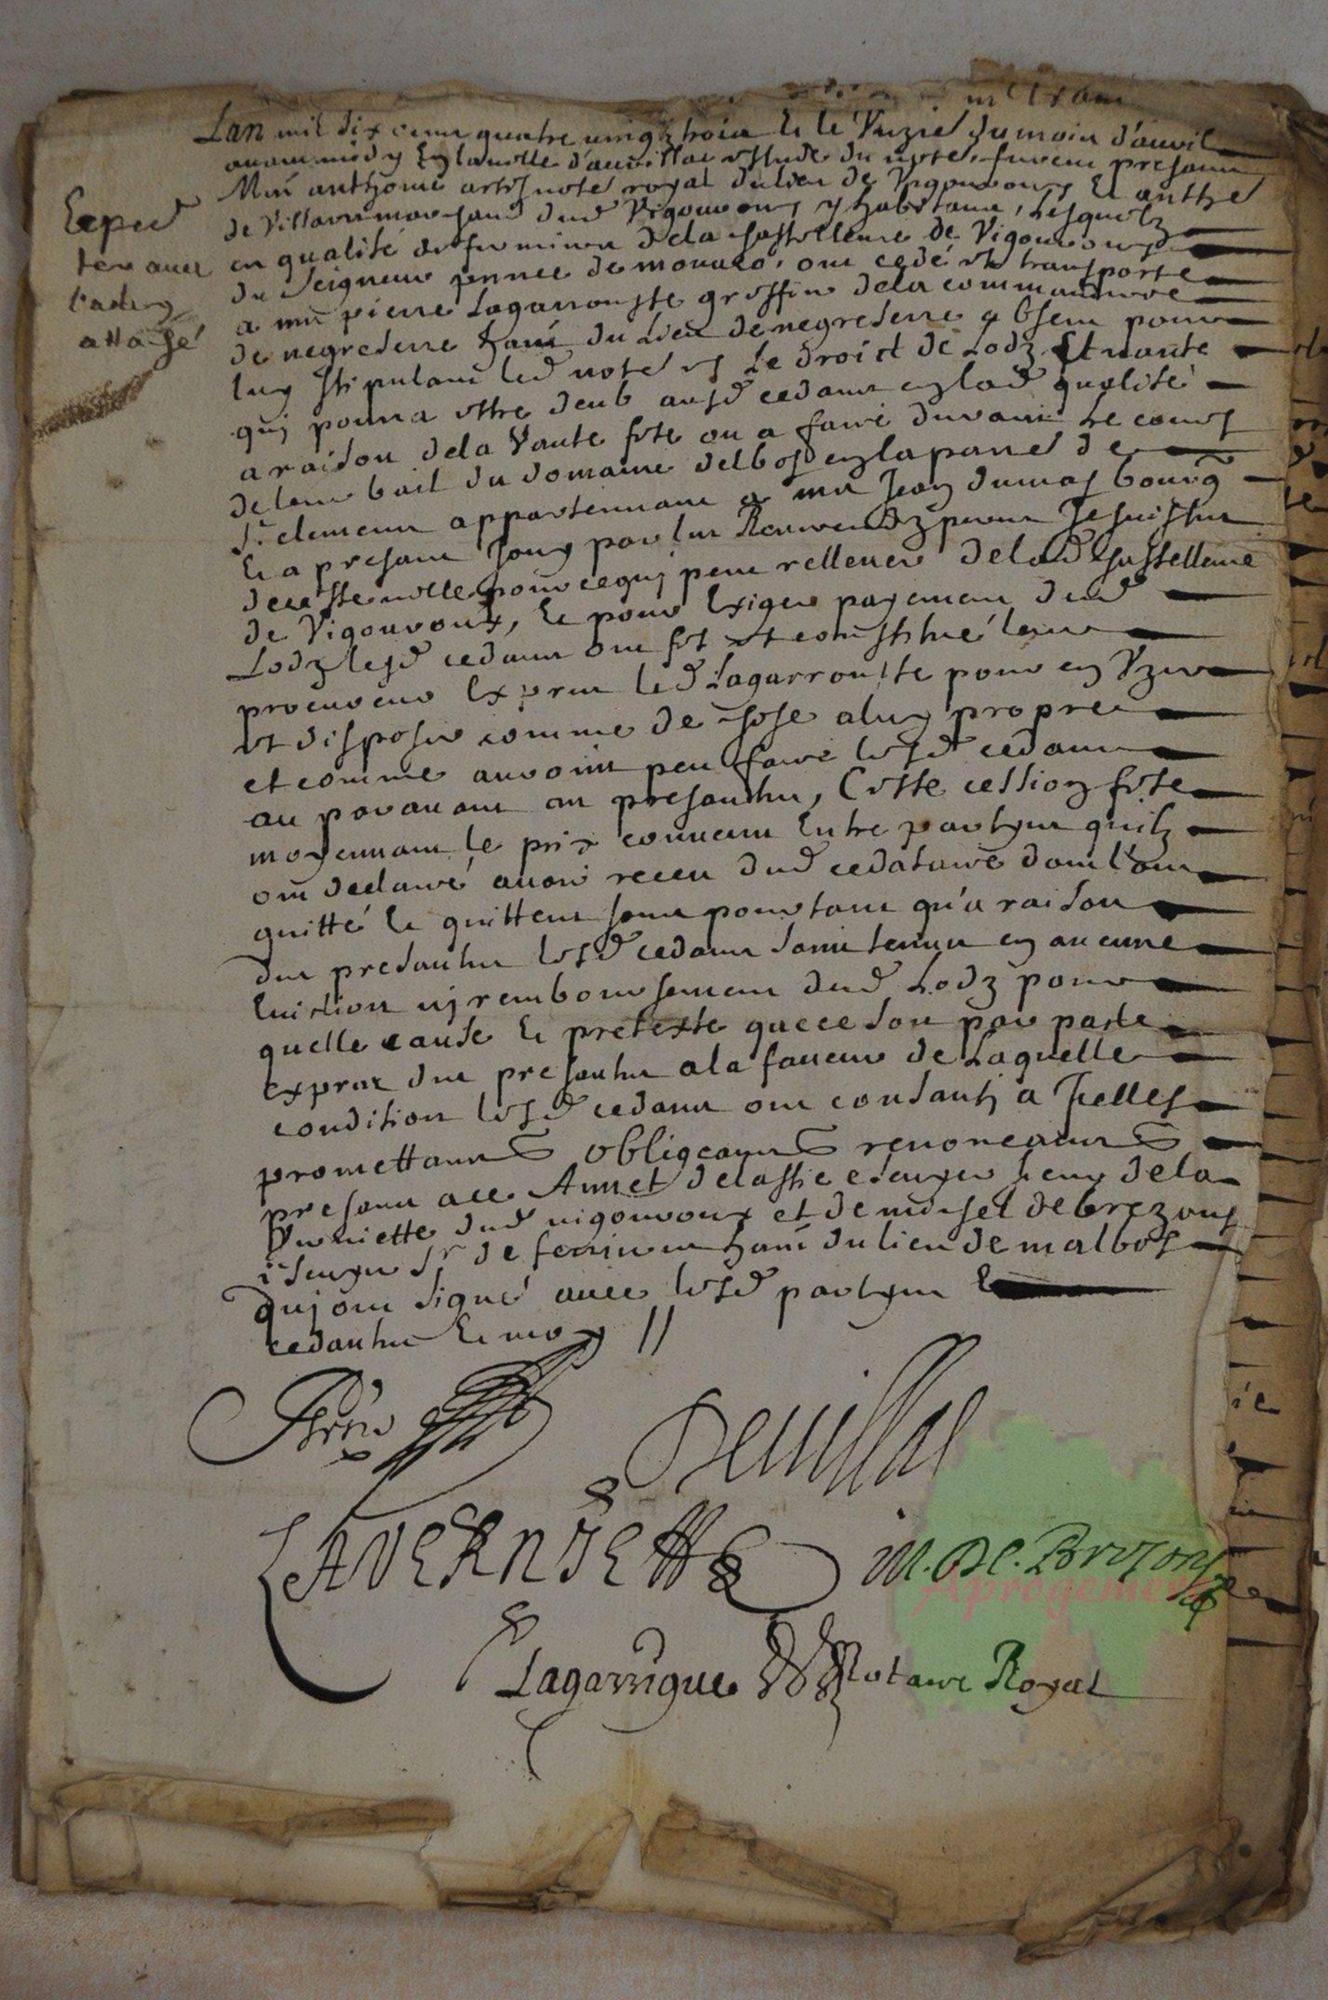 Lan mil six cens quatre vingz trois Et le Unzie du mois d'avril
avant midy En la ville d'aurillac estude du note, furent presans
Mre anthoine artis note royal du lieu de Vigouroux Et anthe
de Villars marchand dud Vigouroux y habitans, Lesquelz
en qualité de fermiers de la chastellenie de Vigouroux
du Seigneur prince de monaco, ont cedé et transporte
a mre pierre Lagarrouste greffier de la commanderie
de negreserre hant du Lieu de negreserre absent pour
luy stipulant led note rl Le droict de Lodz Et vante
quy pourra estre deub ausd cedans en lad qualité
a raison de la Vante fete ou a faire durant Le cours
de leur bail du domaine delbos en la parre de
St clement appartenant a mre Jean dumas bourgs
Et a presant Jouy par les Reverendz peres Jesuistes
de ceste ville pour ce quy peut rellever de lad chastellenie
de Vigouroux, Et pour Exiger payement dud
Lodz lesd cedans ont fet et constitué leur
procureur Expres led Lagarrouste pour en Uzer
et disposer comme de chose a luy propre
et comme auroint peu faire lesd cedans
au paravant au presantes, Ceste cession fete
moyennant le prix convenu Entre partyes quilz
ont declaré avoir receu dud cedataire dont l'ont
quitté Et quittent sans pourtant qu'a raison
des presantes lesd cedans soint tenus en aucune
Eviction ny remboursement dud Lodz pour
quelle cause Et pretexte que ce soit par pacte
expres des presantes a la faveur de Laquelle
condition lesd cedans ont consanty a Jcelles
promettans obligeans renonceans
presans a ce Annet delastic escuyer sieur de la
Verniette dud vigouroux et de michel de brezons
escuyer sr de ferrieres hant du lieu de malbos
quy ont signé avec lesd partyes Et
cedantes Et moy //
Exped
tere avec
l'adery
attaché
Artis
Devillas
LAVERNIETTE
M. De. Brezons
Lagarrigue Notaire Royal
Aprogemere